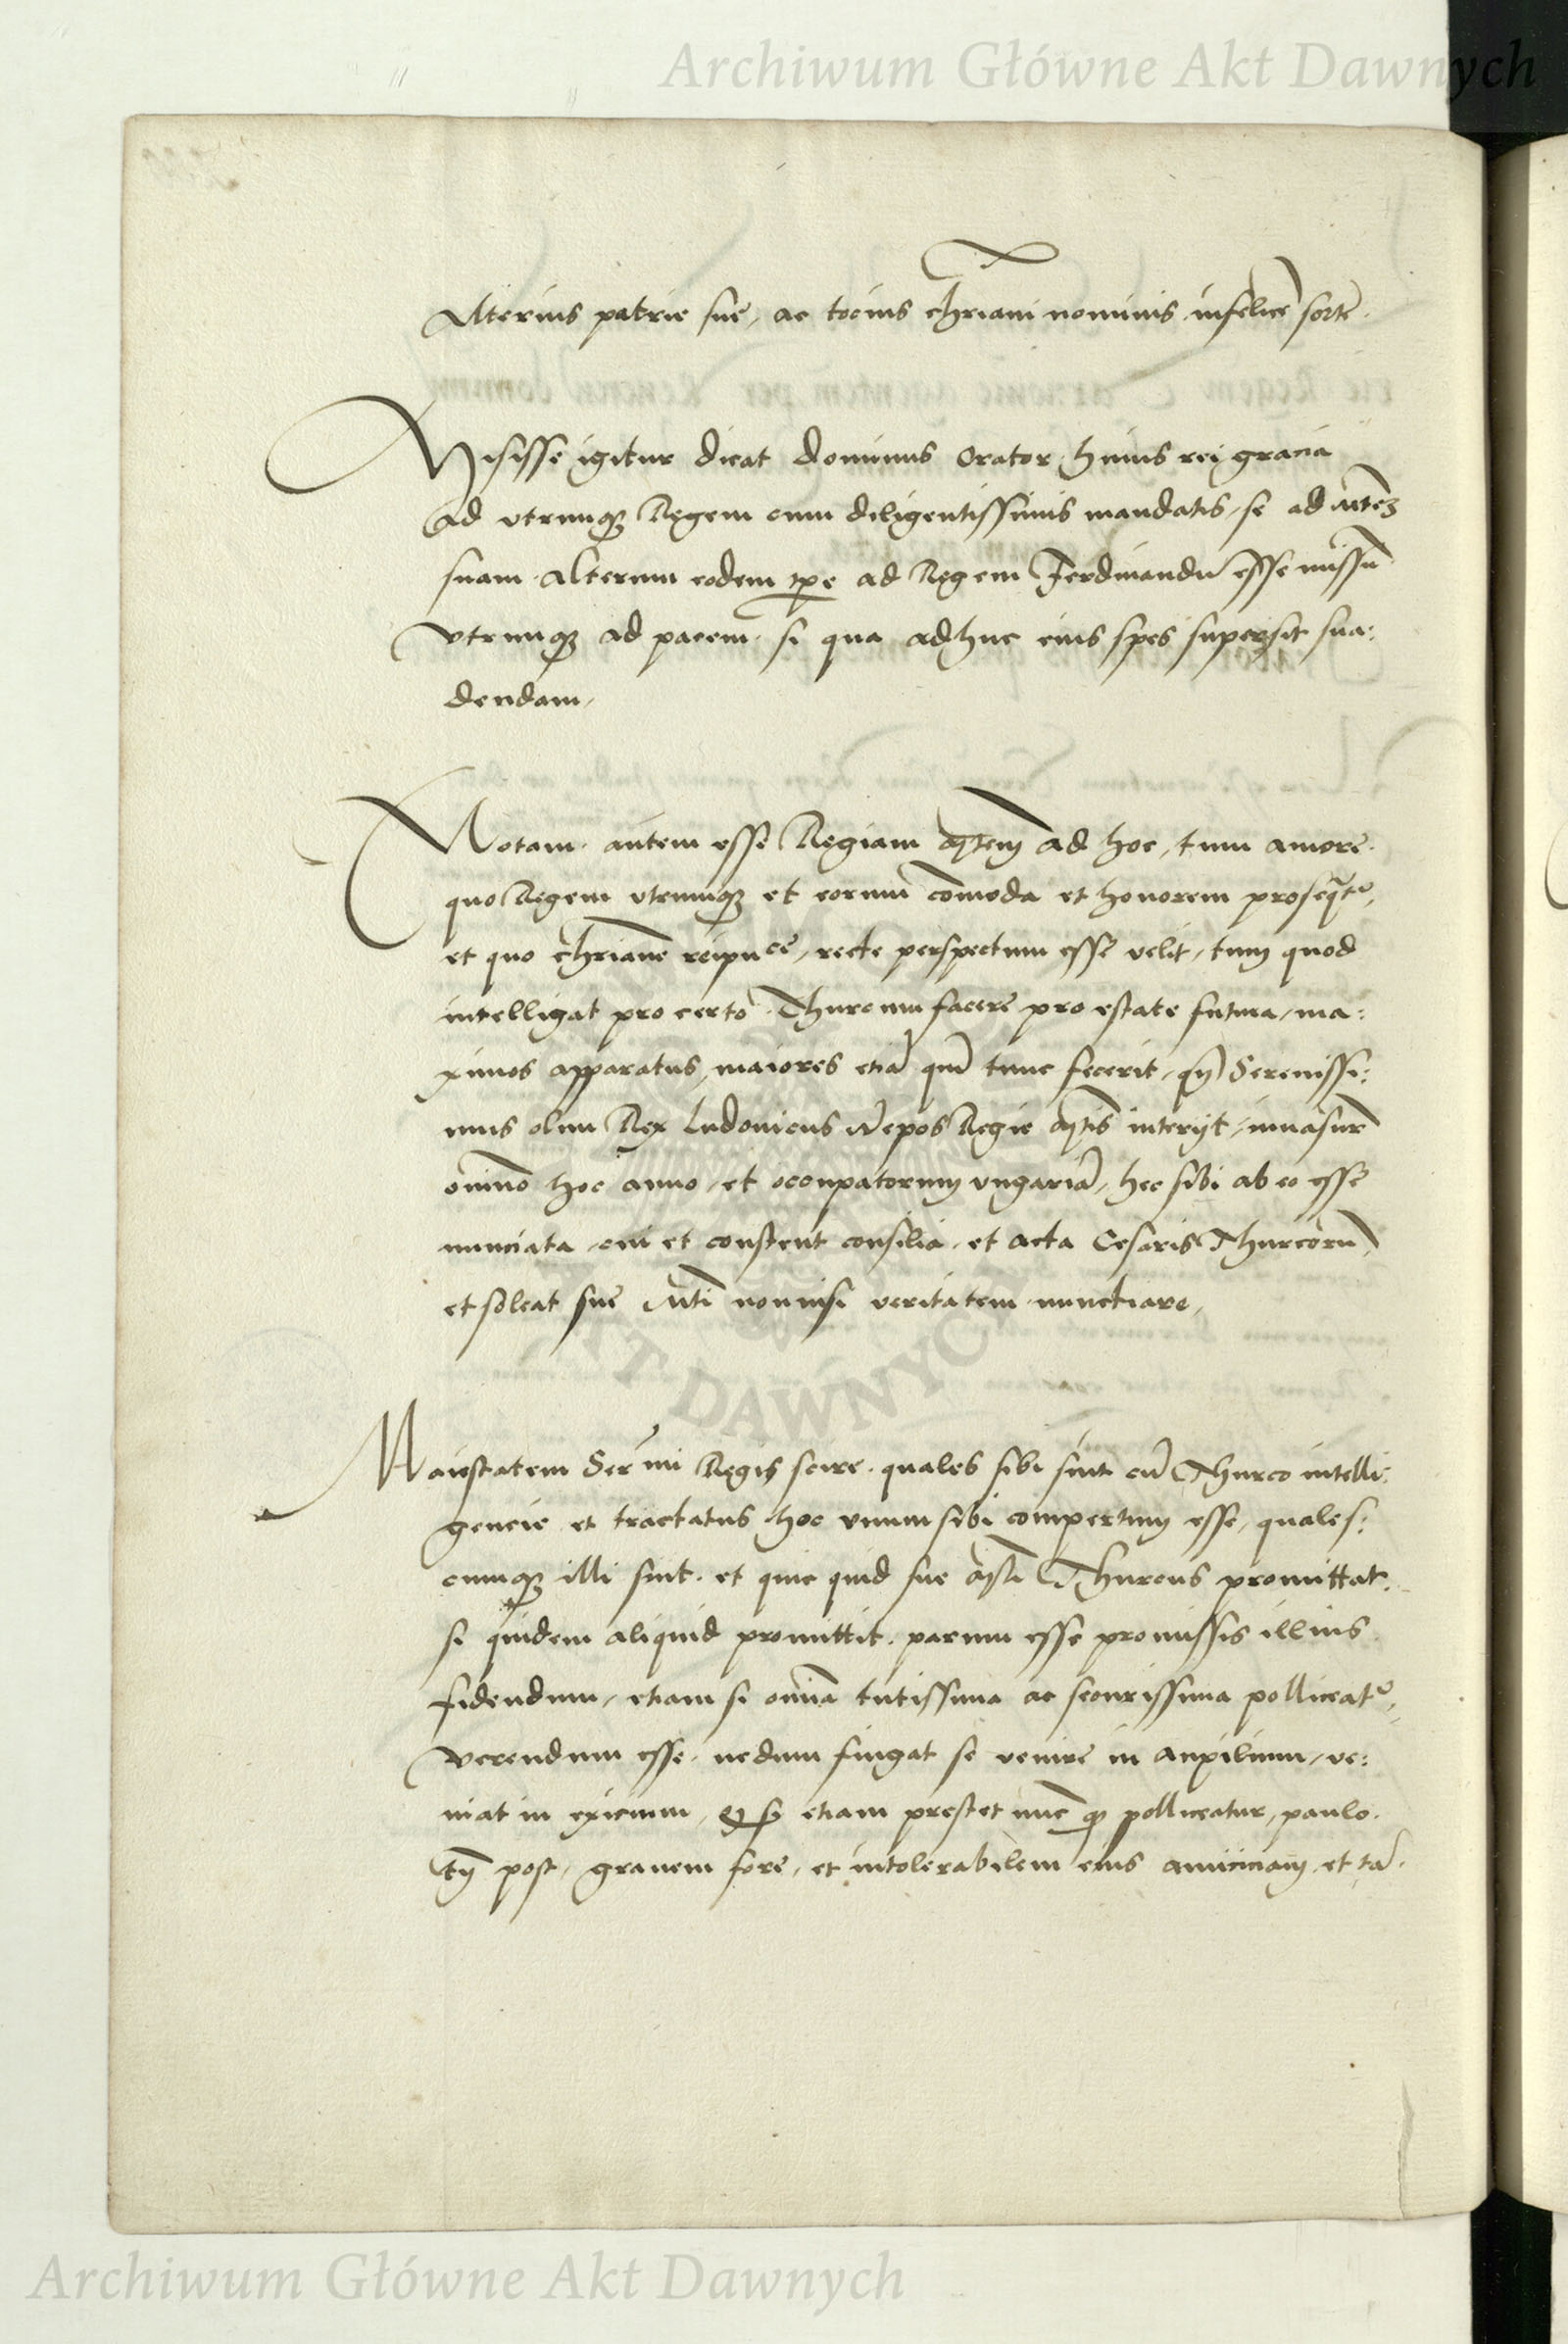 Archiwum Główne Akt Dawnych
alterius patrie sue, ac tocius chriani nominis infelicē sortē.
Misisse igitur dicat dominus Orator huius rei gracia
ad vtrunqȝ Regem cum diligentissimis mandatis, se ad Mtēȝ
suam. Alterum eodem tpe ad Regem Ferdinandū esse missū
vtrunqȝ ad pacem. si qua adhuc eius spes supersit sua:
dendam,
Motam autem esse Regiam Mtem ad hoc, tum amore.
quo Regem vtrunqȝ et eorum cōmoda et honorem proseqt᷑,
et quo chriane reipuce, recte perspectum esse velit, tum quod
intelligat pro certo Thurcum facere pro estate futura, ma:
ximos apparatus, maiores etiā quā tunc fecerit, qn̄ Serenissi:
mus olim Rex Ludouicus Nepos Regie Mtis interijt, inuasurū
omīno hoc anno, et occupatorum vngariā, hec sibi ab eo esse
nunciata cui et constent consilia, et acta Cesaris Thurcorū,
et soleat sue Mti non nisi veritatem nunctiare,
Maiestatem Sermi Regis scire. quales sibi sint cū Thurco intelli:
gencie et tractatus hoc vnum sibi compertum esse, quales:
cunqȝ illi sint. et quic quid sue Mti Thurcus promittat.
si quidem aliquid promittit. parum esse promissis illius
fidendum, etiam si omnia tutissima ac securissima polliceat᷑,
verendum esse. ne dum fingat se venire in auxilium, ve:
niat in exicium, Et si etiam prestet nunc qd polliceatur, paulo.
tn̄ post, grauem fore, et intolerabilem eius amiciciam et tā.
AKT DAWNYCH
Archiwum Główne Akt Dawnych